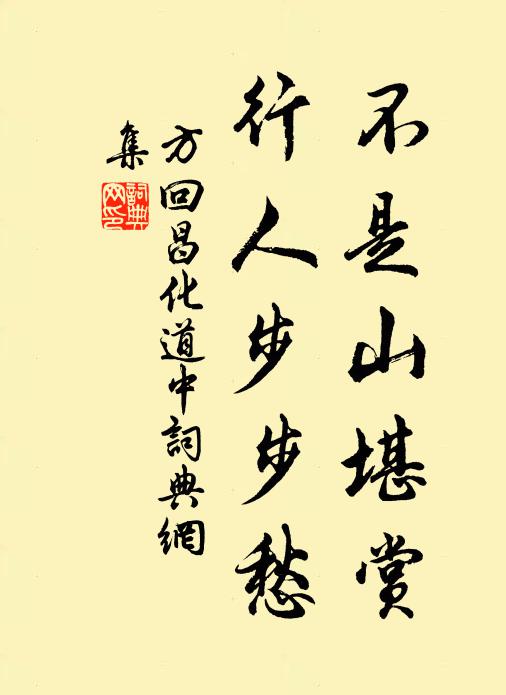 不是山堪赏
行人步步愁
方回昌化道中詞典網
集
詞典
网印